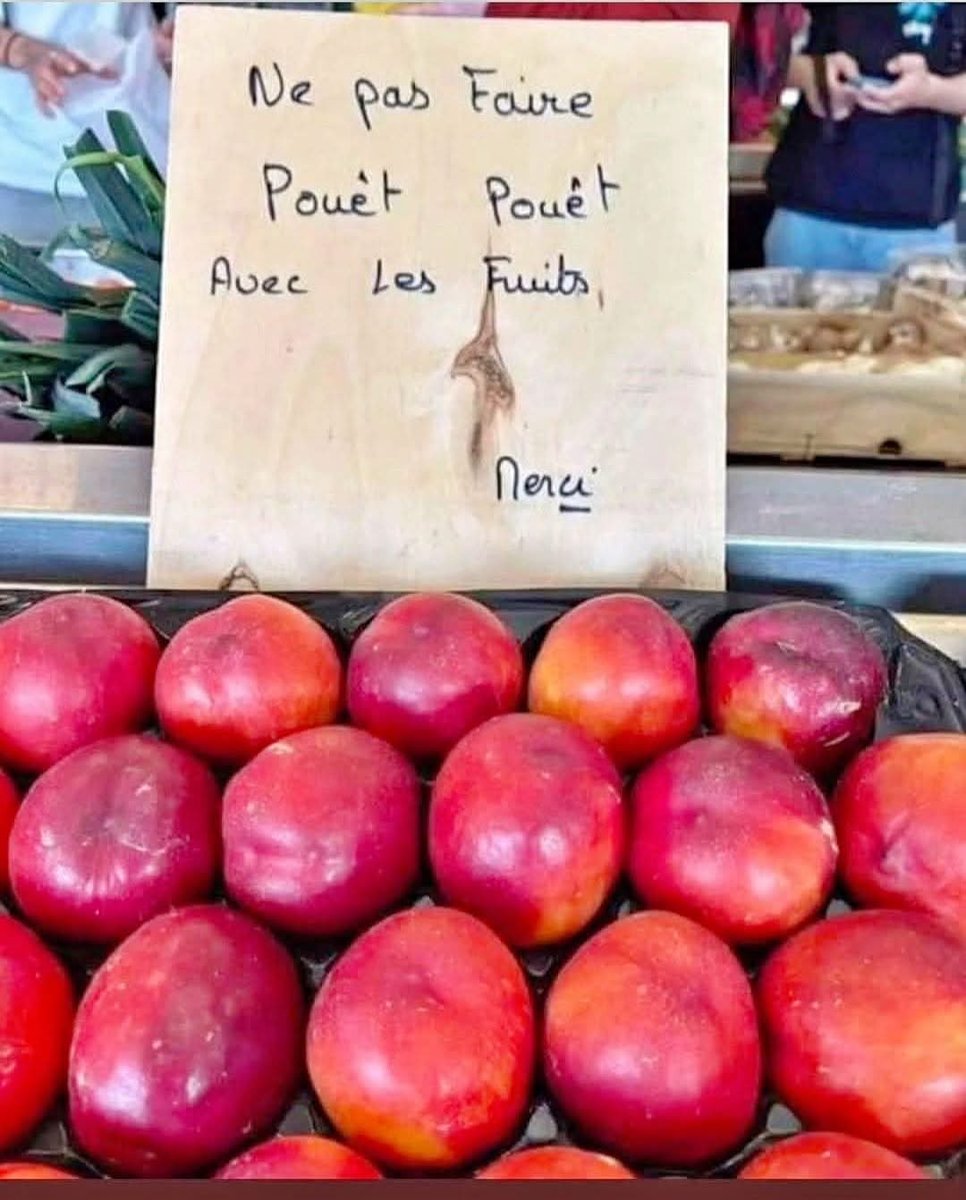 Ne pas Faire
Pouêt Pouêt
Avec Les Fruits,
Merci